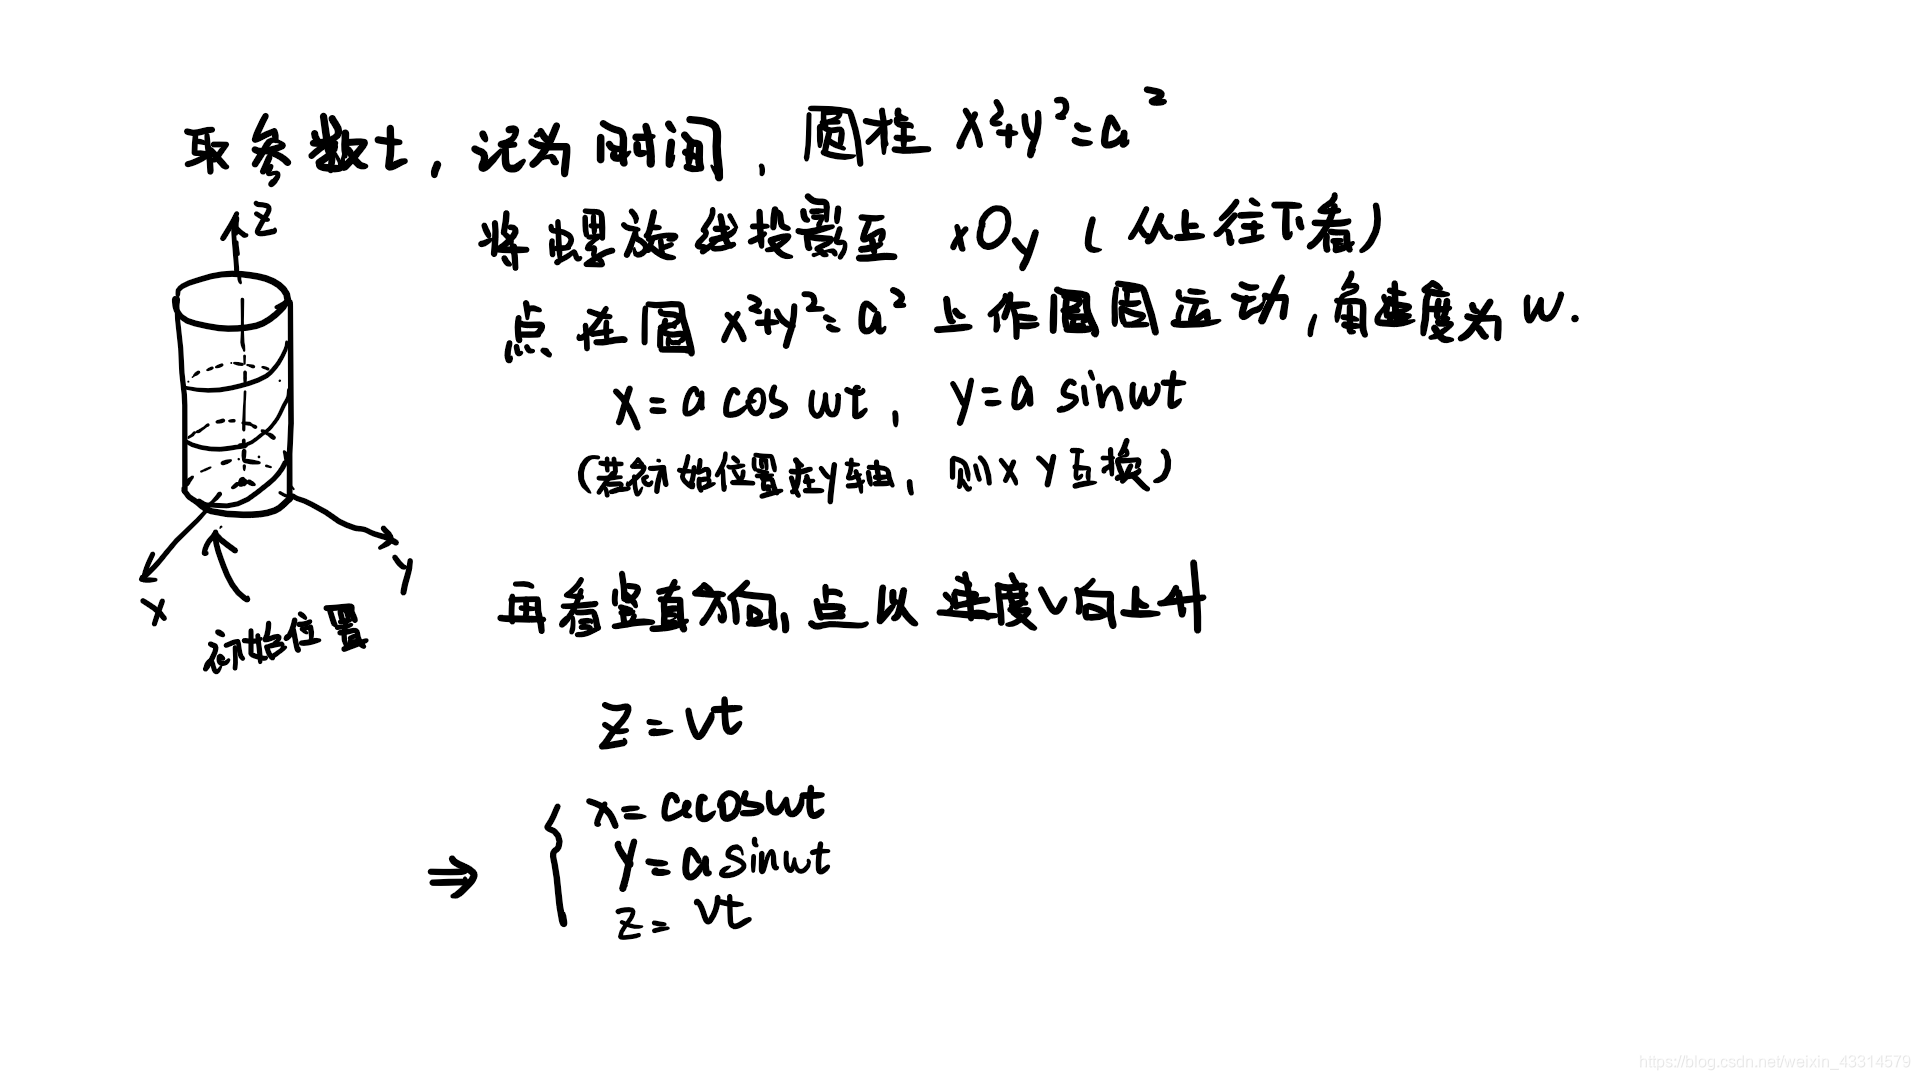 取参数t，记为时间，圆柱 x²+y²=a²
将螺旋线投影至 xOy（从上往下看）
点在圆 x²+y²=a² 上作圆周运动，角速度为 w.
x=a cos wt，y=a sinwt
(若初始位置在y轴，则x y互换)
z
x
y
初始位置
再看竖直方向，点以速度v向上升
z=vt
⇒ { x=acoswt
y=asinwt
z=vt
https://blog.csdn.net/weixin_43314579